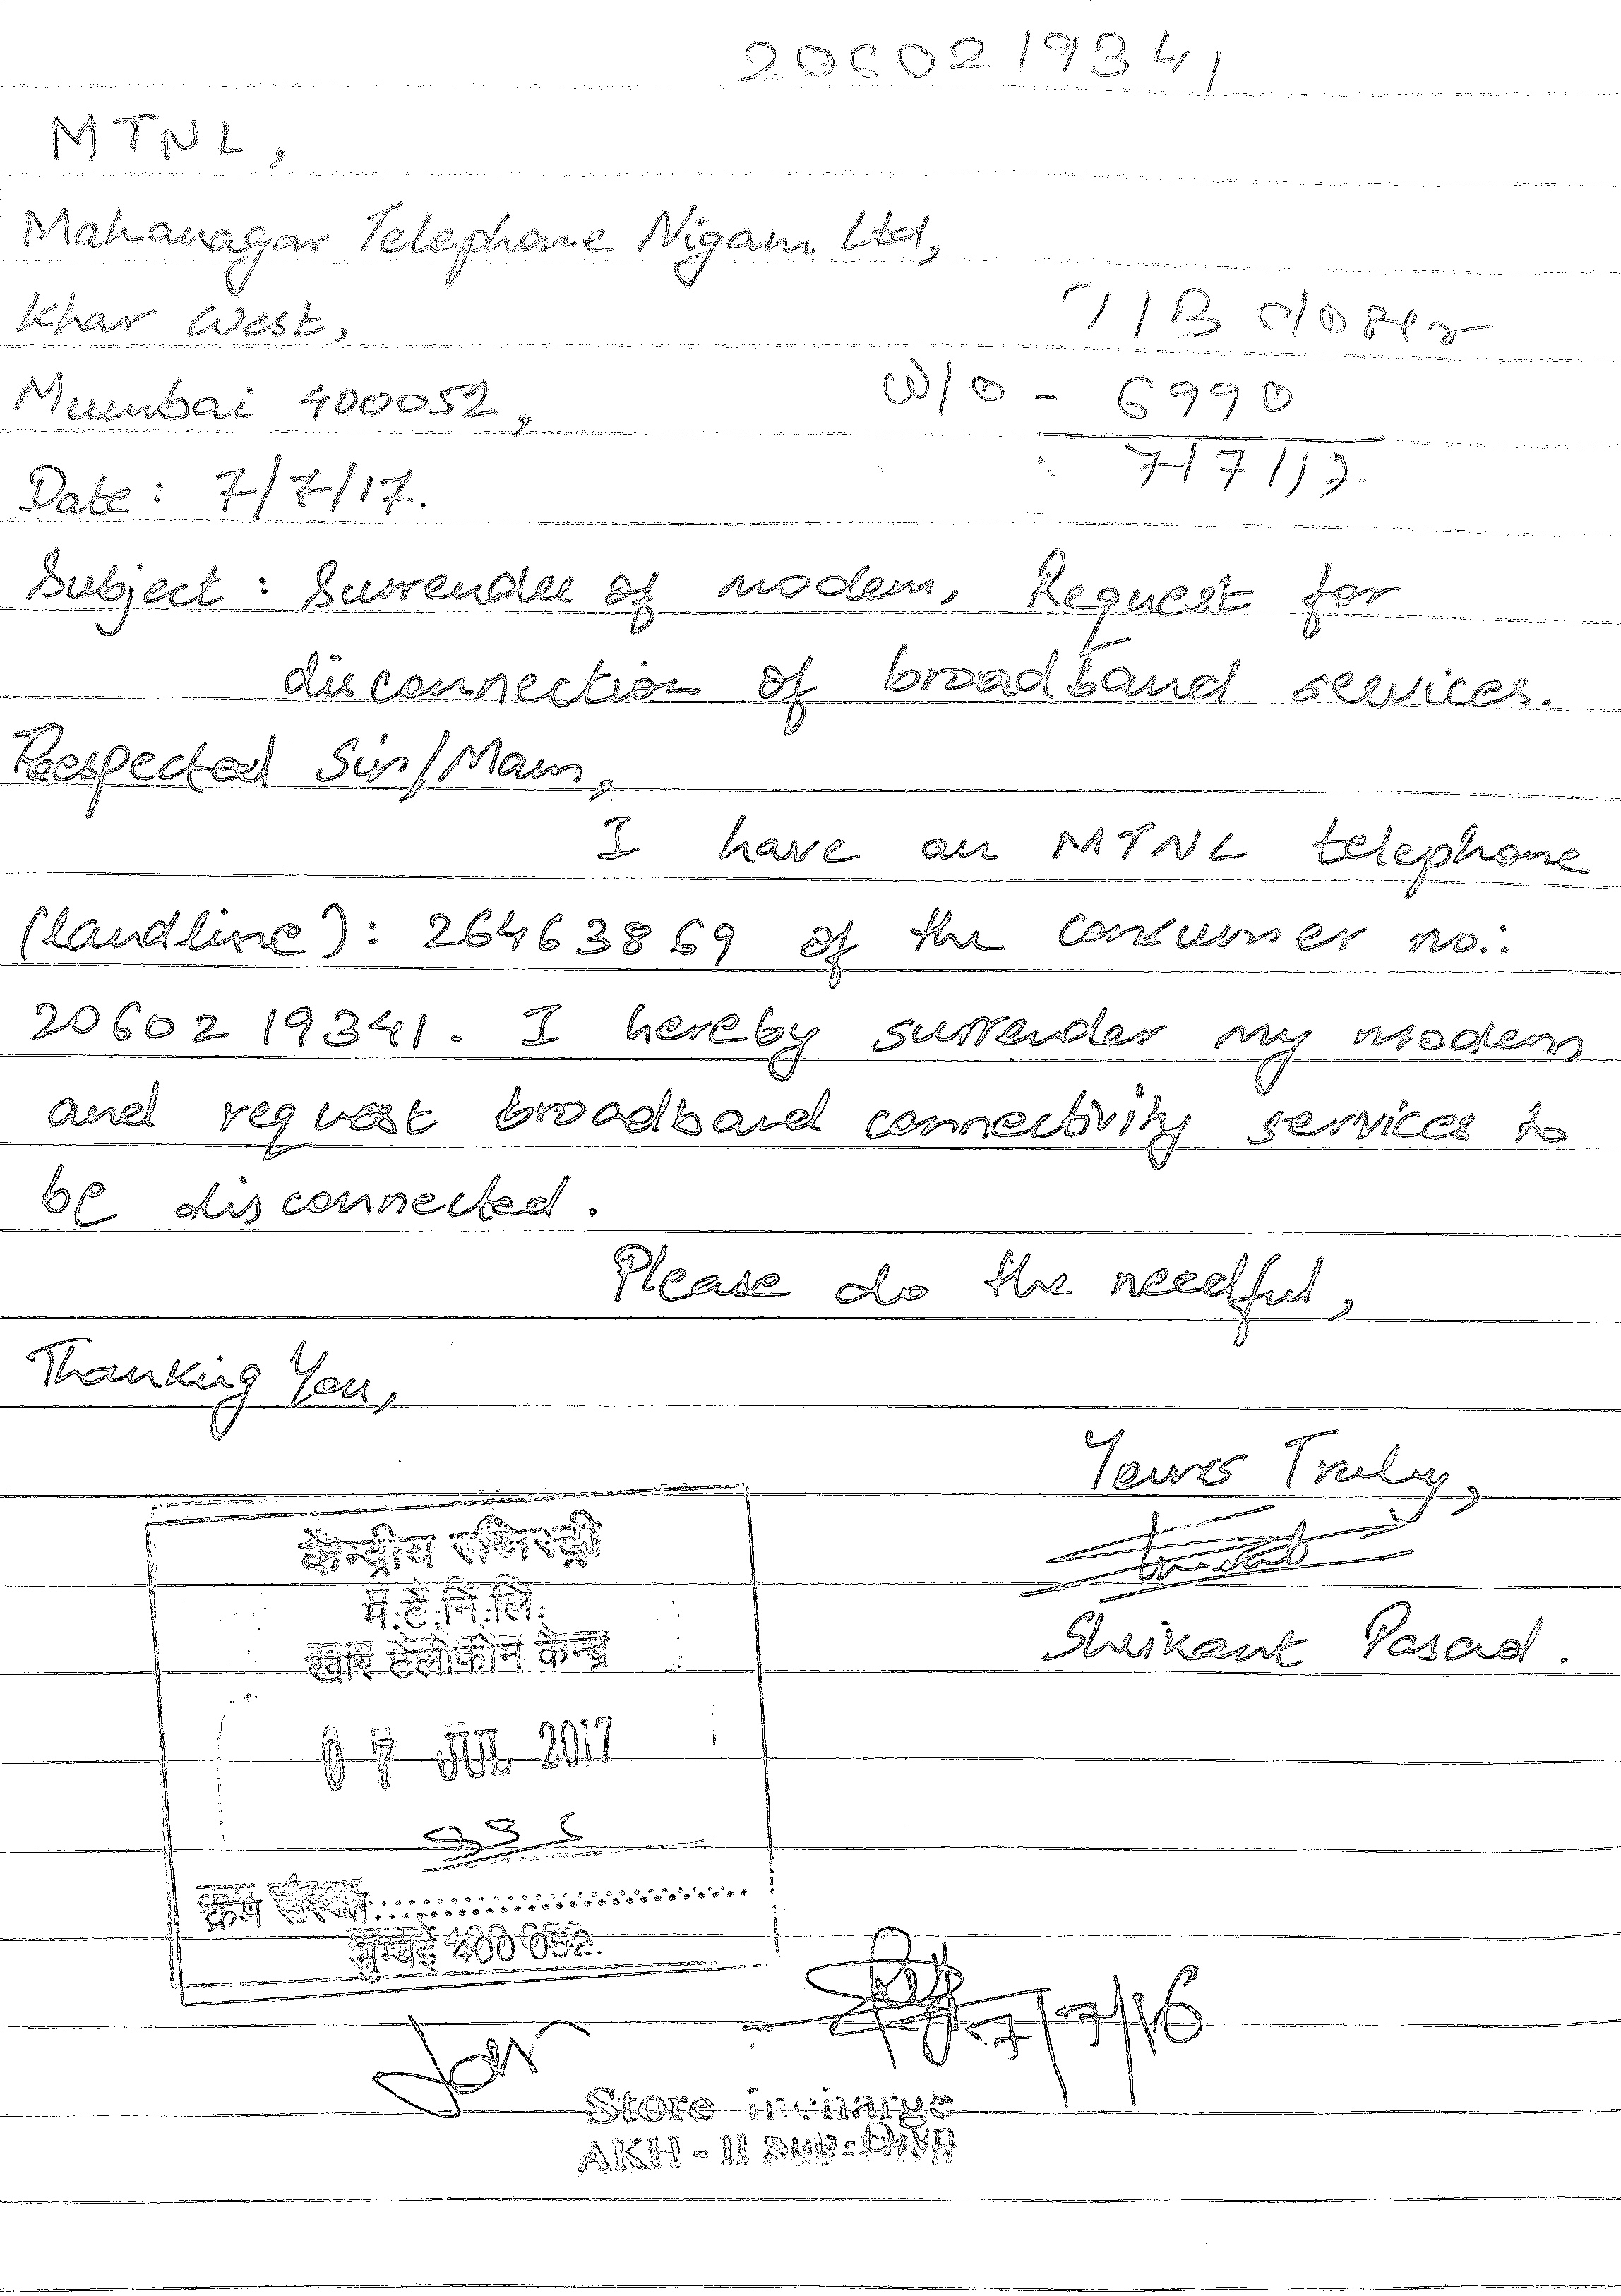 2060219341
MTNL,
Mahanagar Telephone Nigam Ltd,
Khar West,
Mumbai 400052,
W/O - 6990
7/7/17
Date: 7/7/17.
Subject: Surrender of modem. Request for
disconnection of broadband services.
Respected Sir/Mam,
I have an MTNL telephone
(landline): 26463869 of the consumer no.:
2060219341. I hereby surrender my modem
and request broadband connectivity services to
be disconnected.
Please do the needful,
Thanking You,
Yours Truly,
Shrikant Pasad.
केन्द्रीय रजिस्ट्री
म.टे.नि.लि.
खार टेलीफोन केन्द्र
07 JUL 2017
क्रम संख्या
मुम्बई 400 052.
7/7/16
Store incharge
AKH - II Sub-Divn